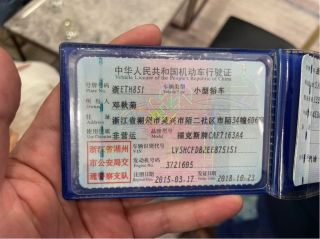 中华人民共和国机动车行驶证
Vehicle License of the People's Republic of China
号牌号码 浙ETH851 车辆类型 小型轿车
Plate No.
所有人 邓秋菊
Owner
住址 浙江省湖州市吴兴市陌二社区市陌34幢606
使用性质 非营运 品牌型号 福克斯牌CAF7163A4
浙江省湖州
市公安局交
通警察支队
车辆识别代号
VIN
发动机号码 3721605
Engine No.
注册日期 2015-03-17 发证日期 2018-10-23